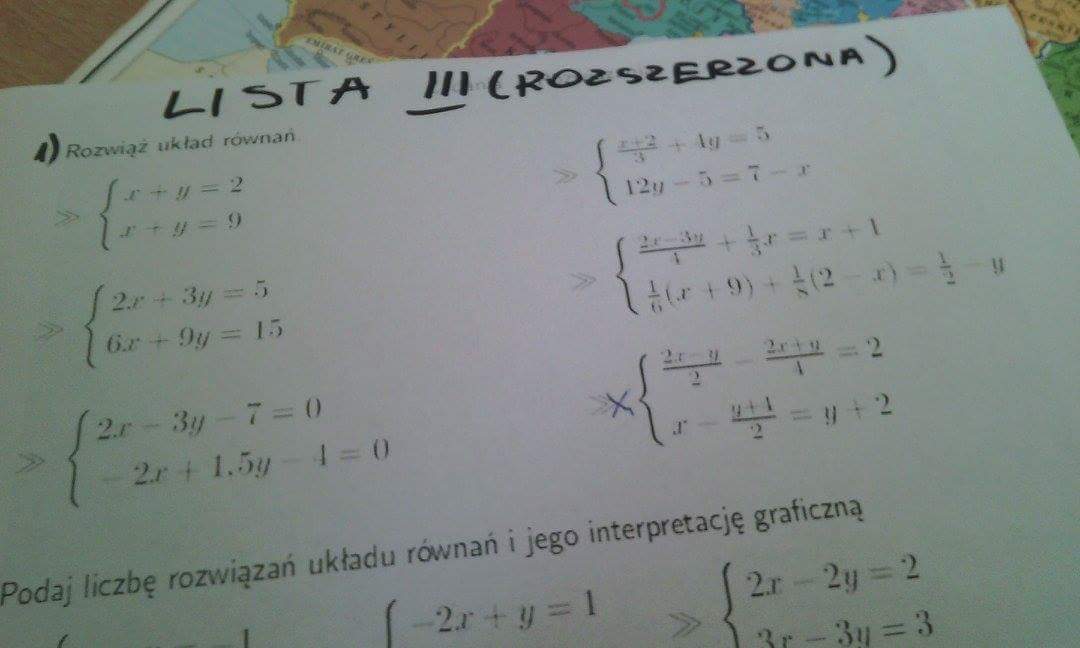 LISTA III (ROZSZERZONA)
1) Rozwiąż układ równań
≫ { x + y = 2
x + y = 9
≫ { 2x + 3y = 5
6x + 9y = 15
≫ { 2x − 3y − 7 = 0
−2x + 1.5y − 4 = 0
≫ { (x+2)/3 + 4y = 5
12y − 5 = 7 − x
≫ { (2x−3y)/4 + 1/3x = x + 1
1/6(x + 9) + 1/8(2 − x) = 1/2 − y
≫ { (2x−y)/2 − (2x+y)/4 = 2
x − (y+4)/2 = y + 2
Podaj liczbę rozwiązań układu równań i jego interpretację graficzną
{ −2x + y = 1
≫ { 2x − 2y = 2
3x − 3y = 3